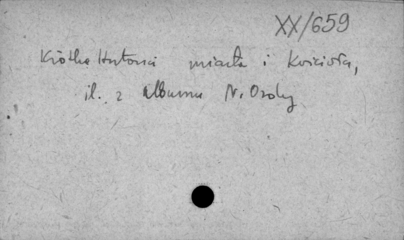 XX/659
Krótka Historia miasta i Kościoła,
il. z albumu N. Ordy